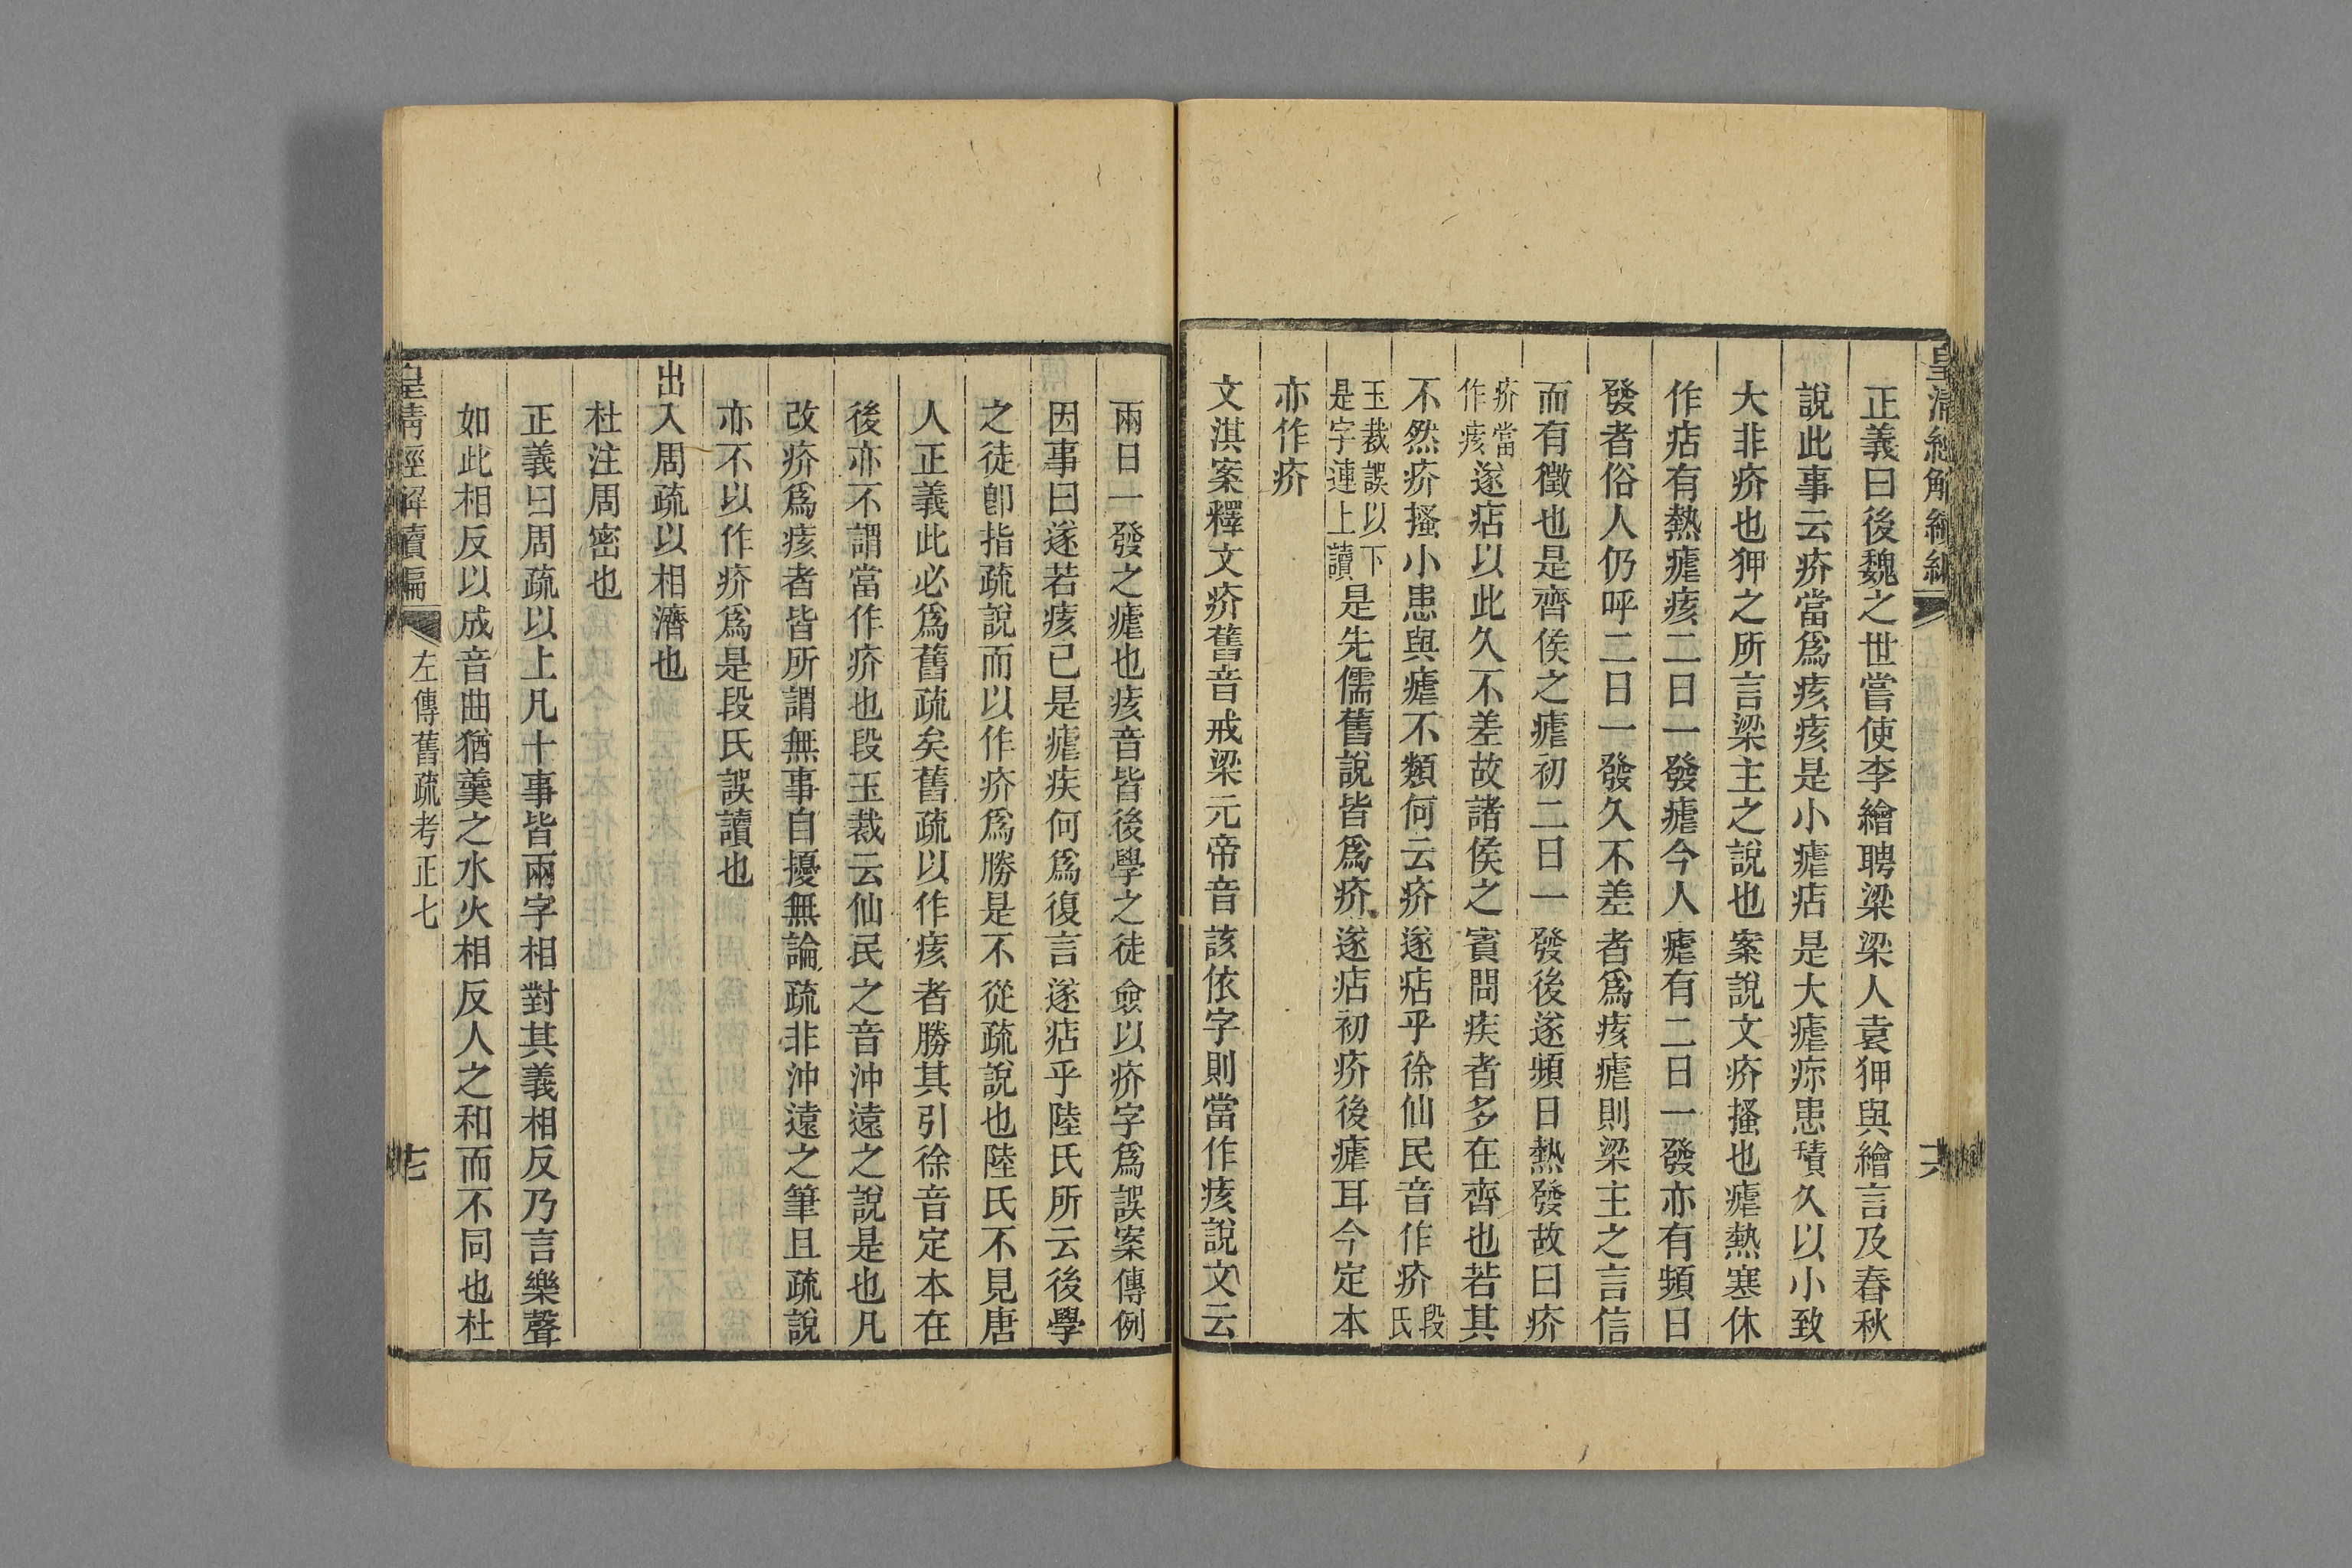 皇清經解續編
十六
正義曰後魏之世嘗使李繪聘梁梁人袁狎與繪言及春秋
說此事云疥當爲痎痎是小瘧痁是大瘧疹患積久以小致
大非疥也狎之所言梁主之說也案說文疥搔也瘧熱寒休
作痁有熱瘧痎二日一發瘧今人瘧有二日一發亦有頻日
發者俗人仍呼二日一發久不差者爲痎瘧則梁主之言信
而有徵也是齊侯之瘧初二日一發後遂頻日熱發故曰疥
疥當作痎遂痁以此久不差故諸侯之賓問疾者多在齊也若其
不然疥搔小患與瘧不類何云疥遂痁乎徐仙民音作疥段氏
玉裁誤以下是字連上讀是先儒舊說皆爲疥遂痁初疥後瘧耳今定本
亦作疥
文淇案釋文疥舊音戒梁元帝音該依字則當作痎說文云
兩日一發之瘧也痎音皆後學之徒僉以疥字爲誤案傳例
因事曰遂若痎已是瘧疾何爲復言遂痁乎陸氏所云後學
之徒卽指疏說而以作疥爲勝是不從疏說也陸氏不見唐
人正義此必爲舊疏矣舊疏以作痎者勝其引徐音定本在
後亦不謂當作疥也段玉裁云仙民之音沖遠之說是也凡
改疥爲痎者皆所謂無事自擾無論疏非沖遠之筆且疏說
亦不以作疥爲是段氏誤讀也
出入周疏以相濟也
杜注周密也
正義曰周疏以上凡十事皆兩字相對其義相反乃言樂聲
如此相反以成音曲猶羹之水火相反人之和而不同也杜
皇清經解續編
左傳舊疏考正七
十七